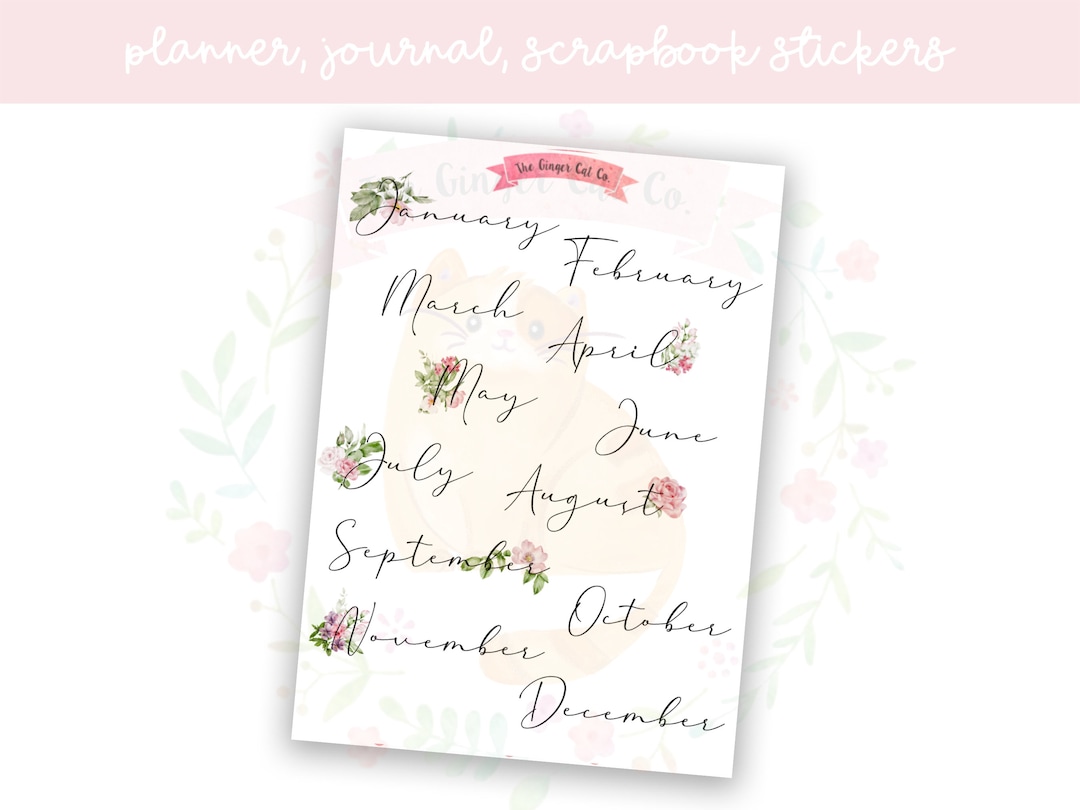 planner, journal, scrapbook stickers
The Ginger Cat Co.
The Ginger Cat Co.
January
February
March
April
May
June
July
August
September
October
November
December